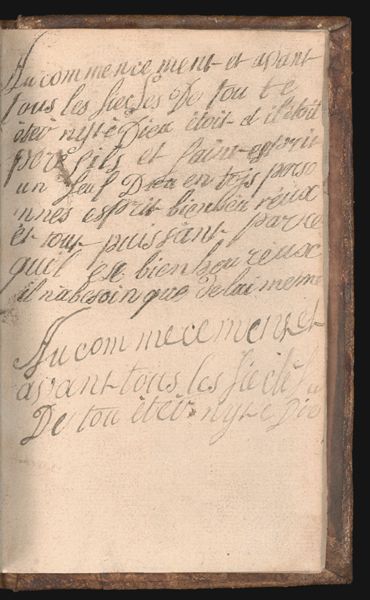 Au commencement et avant
tous les siecles De toute
eternité Dieu étoit et il étoit
pere fils et saint esprit
un seul Dieu en trois perso
nnes esprit bienheureux
et tout puissant parce
quil est bien heureux
il n'abesoin que de lui meme
Au commecement et
avant tous les siecles
De toute éternyté Die